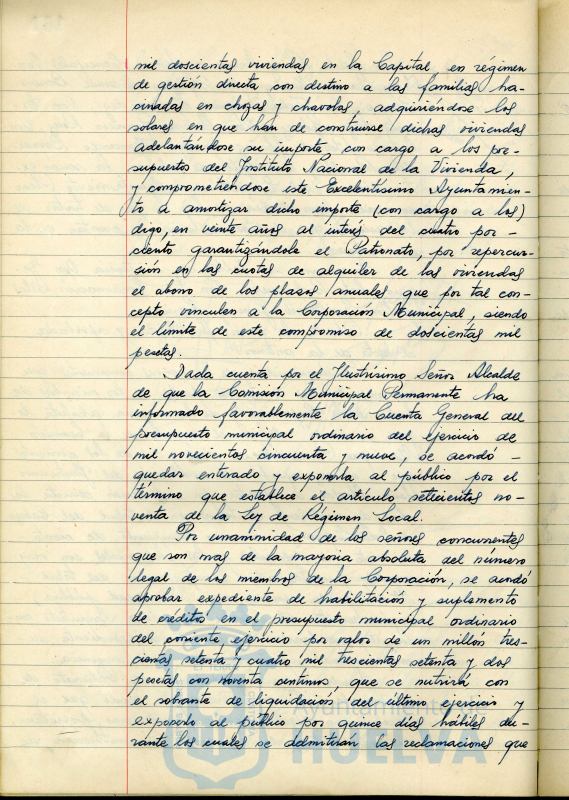 mil doscientas viviendas en la Capital, en régimen
de gestión directa con destino a las familias ha-
cinadas en chozas y chavolas, adquiriéndose los
solares en que han de construirse dichas viviendas
adelantándose su importe con cargo a los pre-
supuestos del Instituto Nacional de la Vivienda,
y comprometiéndose este Excelentísimo Ayuntamien-
to a amortizar dicho importe (con cargo a los)
digo, en veinte años al interés del cuatro por -
ciento garantizándole el Patronato, por repercur-
sión en las cuotas de alquiler de las viviendas
el abono de los plazos anuales que por tal con-
cepto vinculen a la Corporación Municipal, siendo
el límite de este compromiso de doscientas mil
pesetas.
Dada cuenta por el Ilustrísimo Señor Alcalde
de que la Comisión Municipal Permanente ha
informado favorablemente la Cuenta General del
presupuesto municipal ordinario del ejercicio de
mil novecientos cincuenta y nueve, se acordó -
quedar enterado y exponerla al público por el
término que establece el artículo setecientos no-
venta de la Ley de Régimen Local.
Por unanimidad de los señores concurrentes
que son mas de la mayoria absoluta del número
legal de los miembros de la Corporación, se acordó
aprobar expediente de habilitación y suplemento
de créditos en el presupuesto municipal ordinario
del corriente ejercicio por valor de un millón tres-
cientas setenta y cuatro mil trescientas setenta y dos
pesetas con noventa centimos, que se nutrirá con
el sobrante de liquidación del último ejercicio y
exponerlo al público por quince días hábiles du-
rante los cuales se admitirán las reclamaciones que
Ayuntamiento
HUELVA